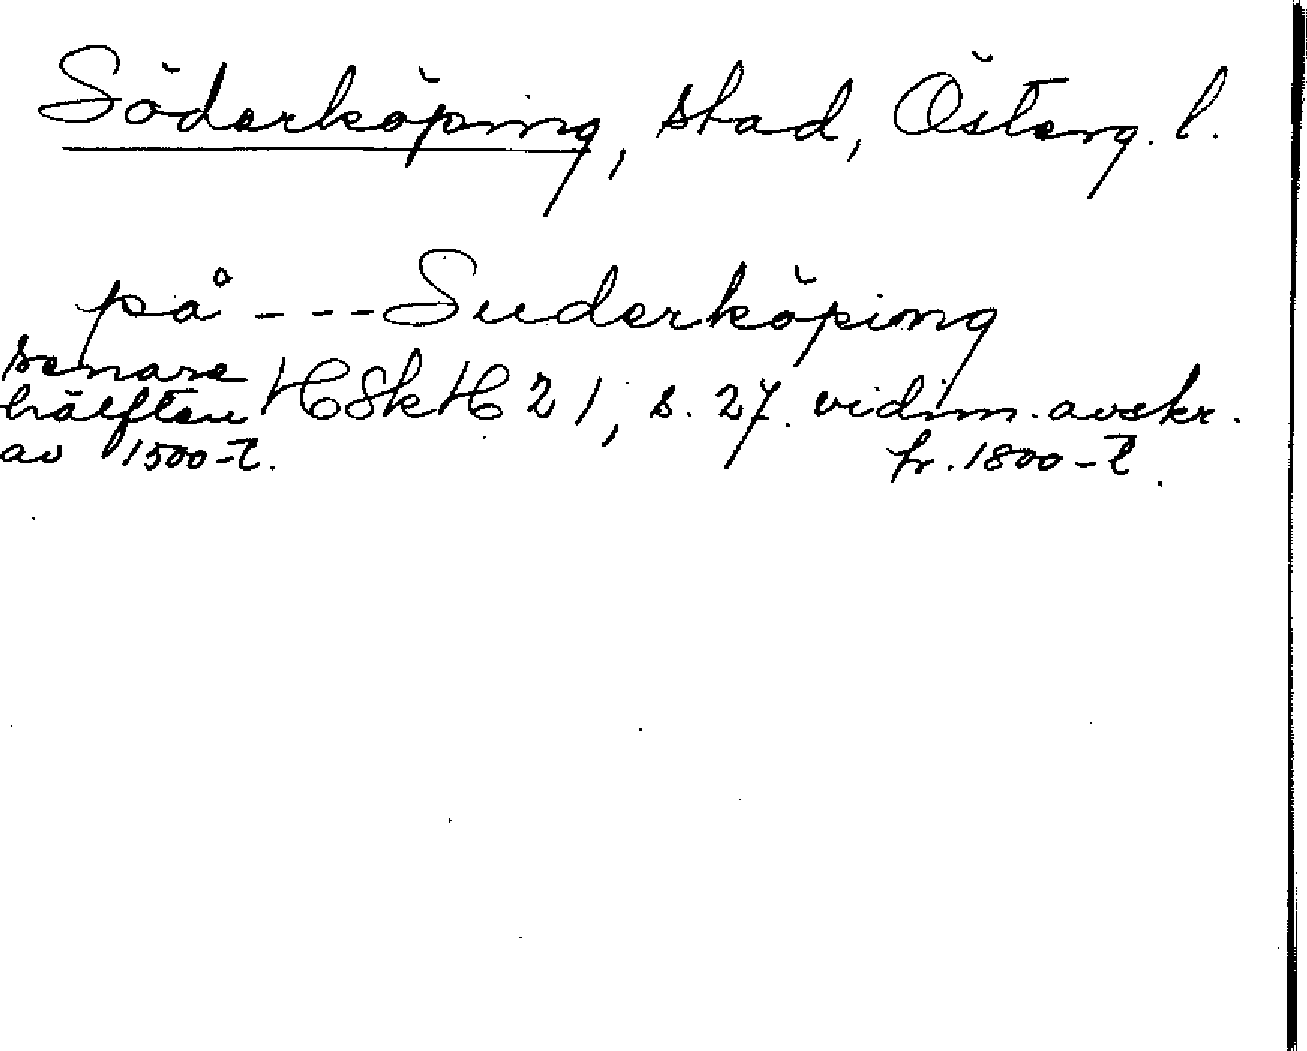 Söderköping, stad, Österg. l.
på --- Suderköping
senare
hälften HSkH 21, s. 27. vidim. avskr.
av 1500-t. fr. 1800-t.